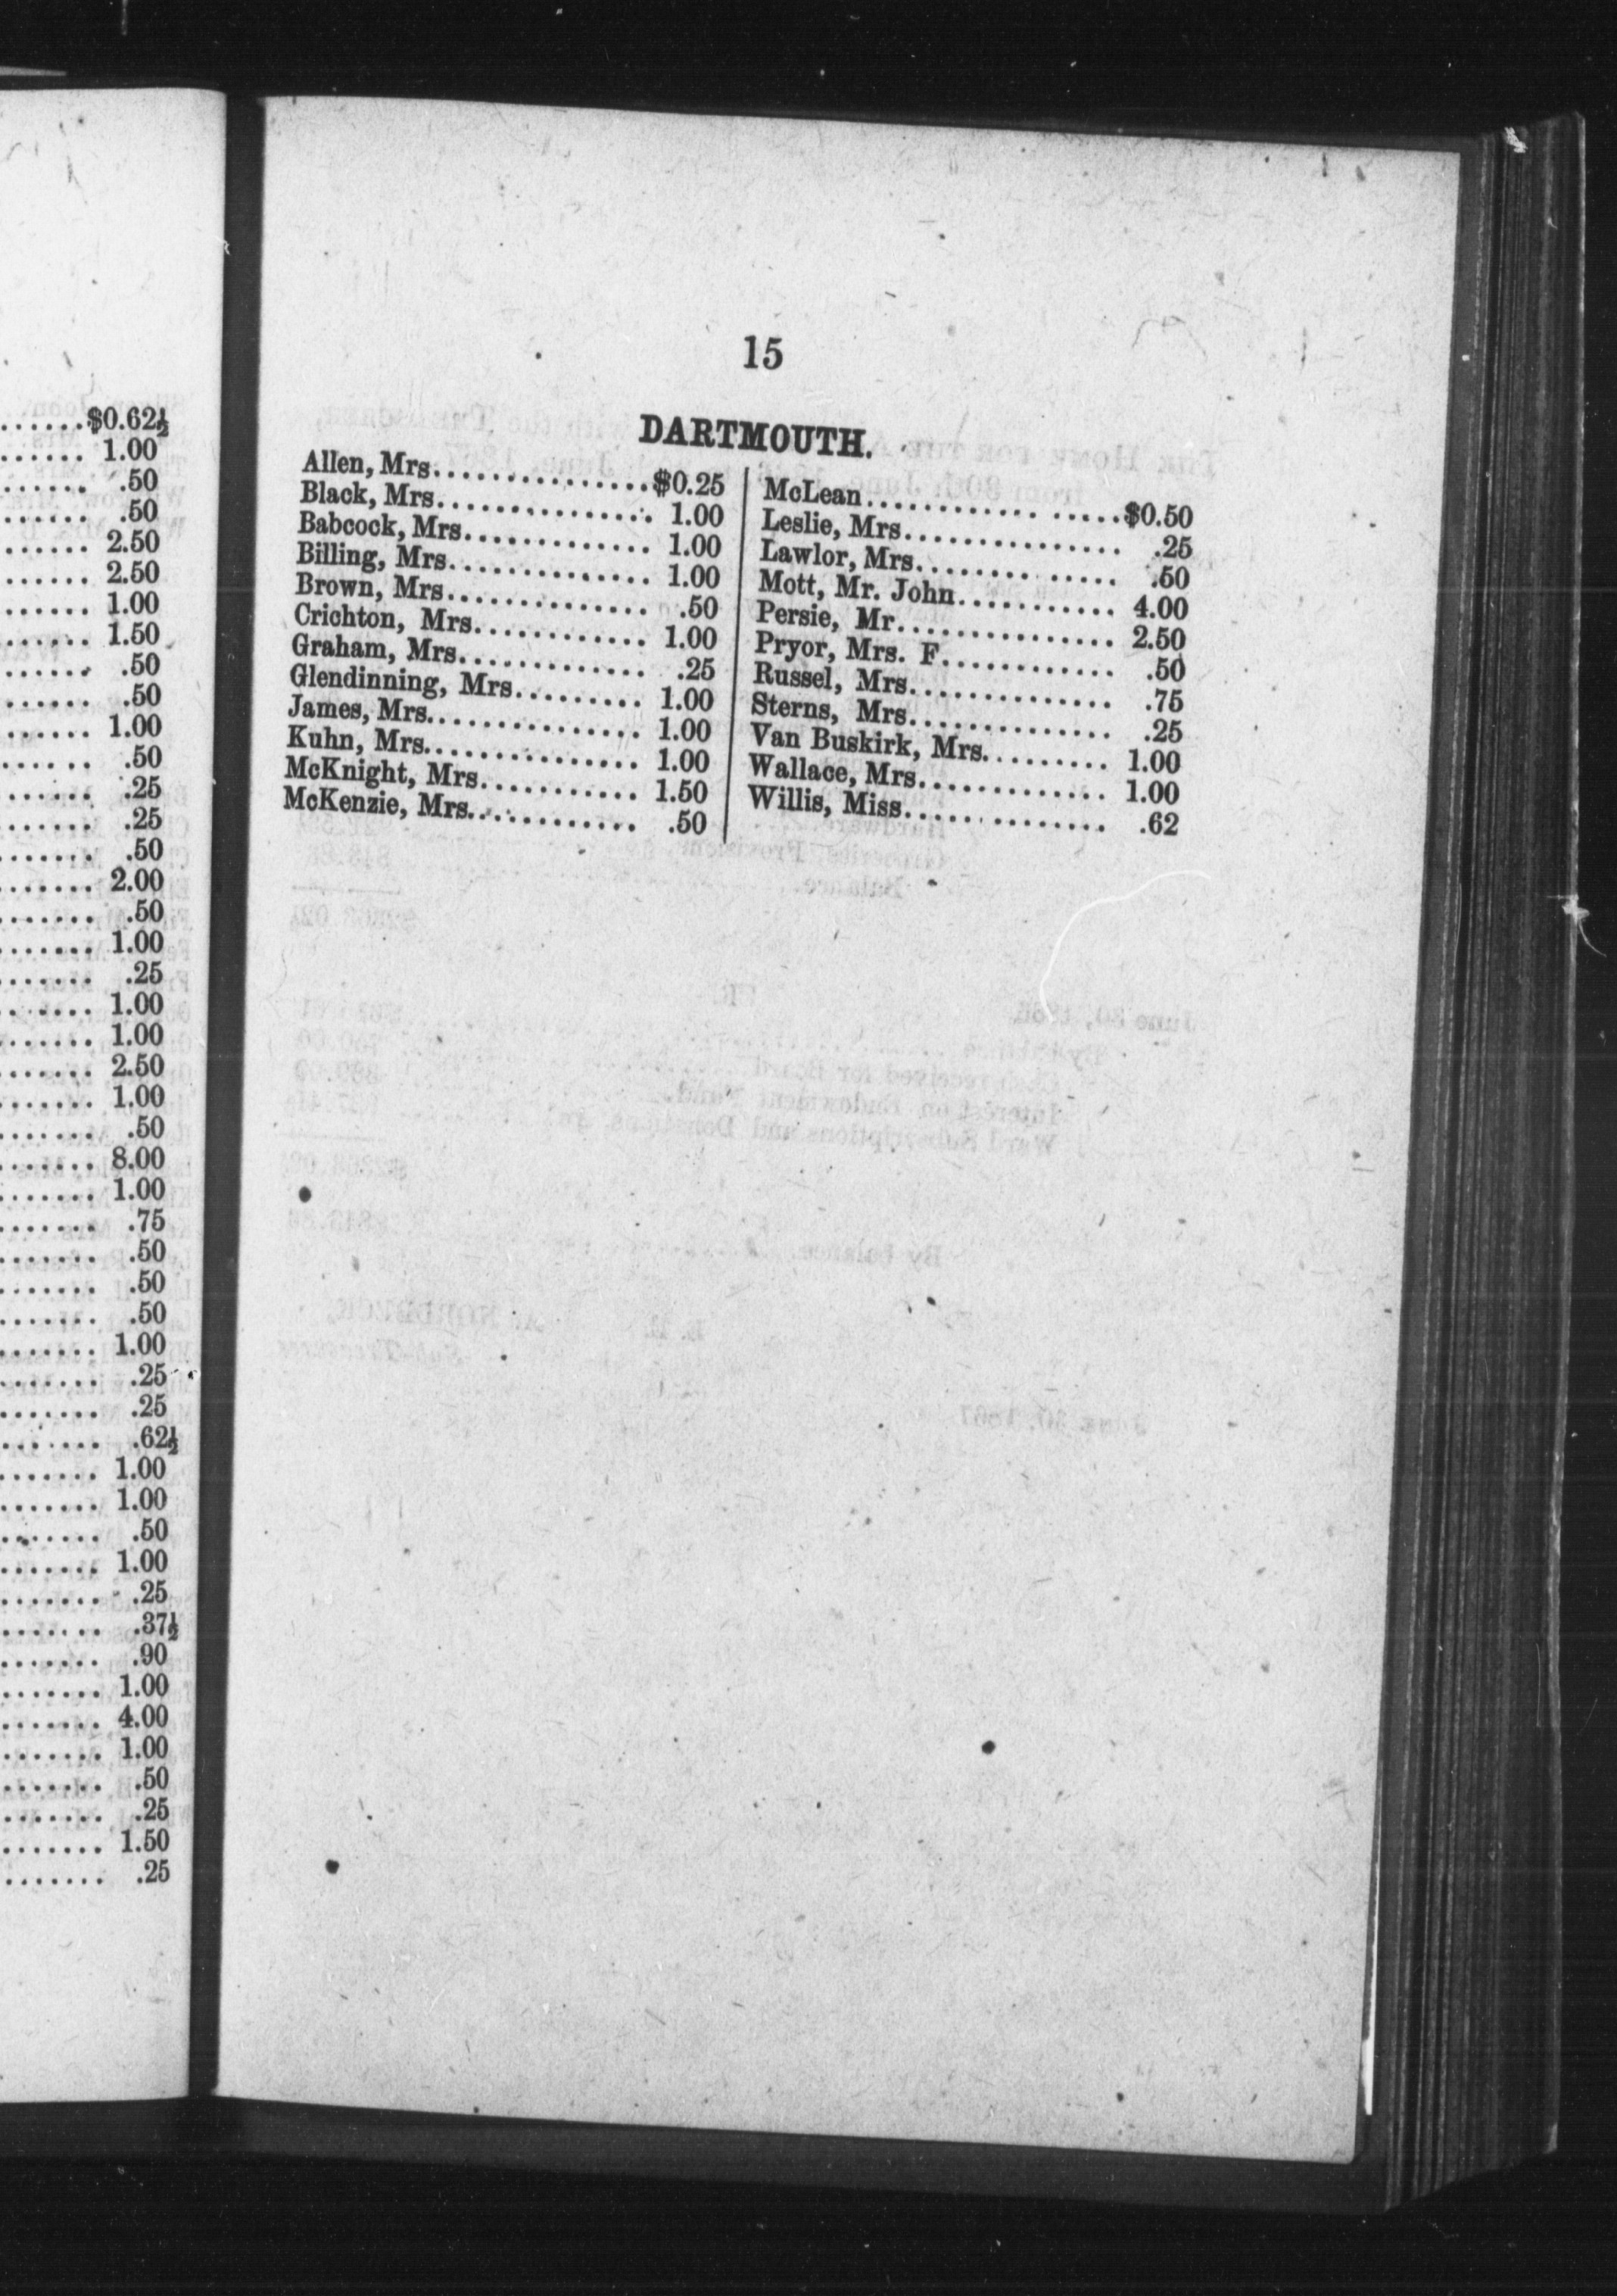 $0.62½
1.00
.50
.50
2.50
2.50
1.00
1.50
.50
.50
1.00
.50
.25
.25
.50
2.00
.50
1.00
.25
1.00
1.00
2.50
1.00
.50
8.00
1.00
.75
.50
.50
.50
1.00
.25
.25
.62½
1.00
1.00
.50
1.00
.25
.37½
.90
1.00
4.00
1.00
.50
.25
1.50
.25
15
DARTMOUTH.
Allen, Mrs................$0.25
Black, Mrs................ 1.00
Babcock, Mrs............. 1.00
Billing, Mrs............... 1.00
Brown, Mrs............... .50
Crichton, Mrs............. 1.00
Graham, Mrs.............. .25
Glendinning, Mrs......... 1.00
James, Mrs................ 1.00
Kuhn, Mrs................ 1.00
McKnight, Mrs........... 1.50
McKenzie, Mrs............ .50
McLean.................$0.50
Leslie, Mrs............... .25
Lawlor, Mrs............. .50
Mott, Mr. John........... 4.00
Persie, Mr................ 2.50
Pryor, Mrs. F............ .50
Russel, Mrs.............. .75
Sterns, Mrs.............. .25
Van Buskirk, Mrs......... 1.00
Wallace, Mrs............. 1.00
Willis, Miss.............. .62